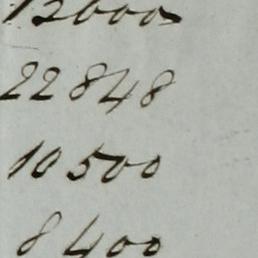 12000
22848
10500
8400